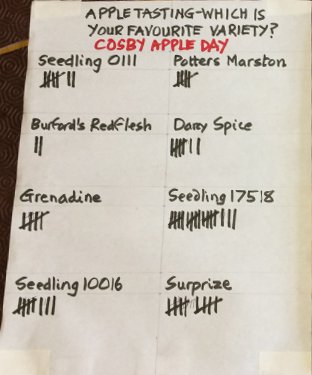 APPLE TASTING-WHICH IS
YOUR FAVOURITE VARIETY?
COSBY APPLE DAY
Seedling 0111
Potters Marston
Burford's Redflesh
Darry Spice
Grenadine
Seedling 17518
Seedling 10016
Surprize